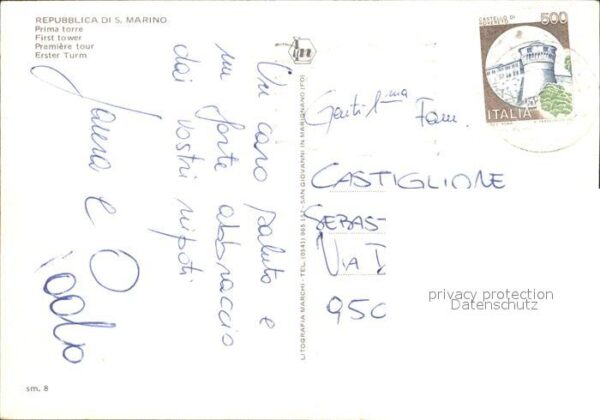 REPUBBLICA DI S. MARINO
Prima torre
First tower
Première tour
Erster Turm
Un caro saluto e
un forte abbraccio
dai vostri nipoti
Paolo
LITOGRAFIA MARCHI - TEL. (0541) 955 157 - SAN GIOVANNI IN MARIGNANO (FO)
CASTELLO DI
ROVERETO
500
ITALIA
Gentil.ma Fam.
CASTIGLIONE
SEBAS
VIA I
950
privacy protection
Datenschutz
sm. 8